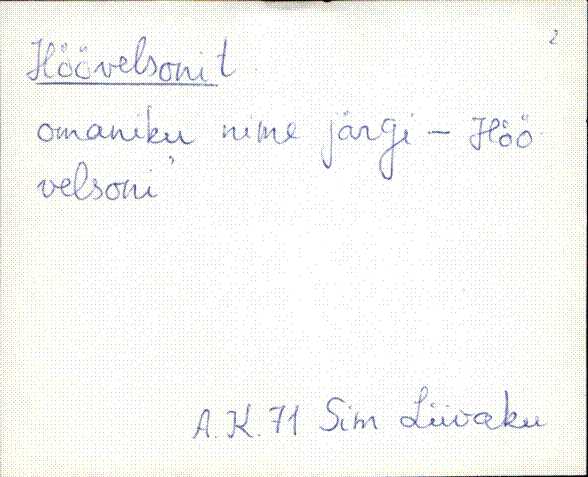 2
Höövelsonit
omaniku nime järgi – Höö
velsoni"
A.K. 71 Sim Liivaku